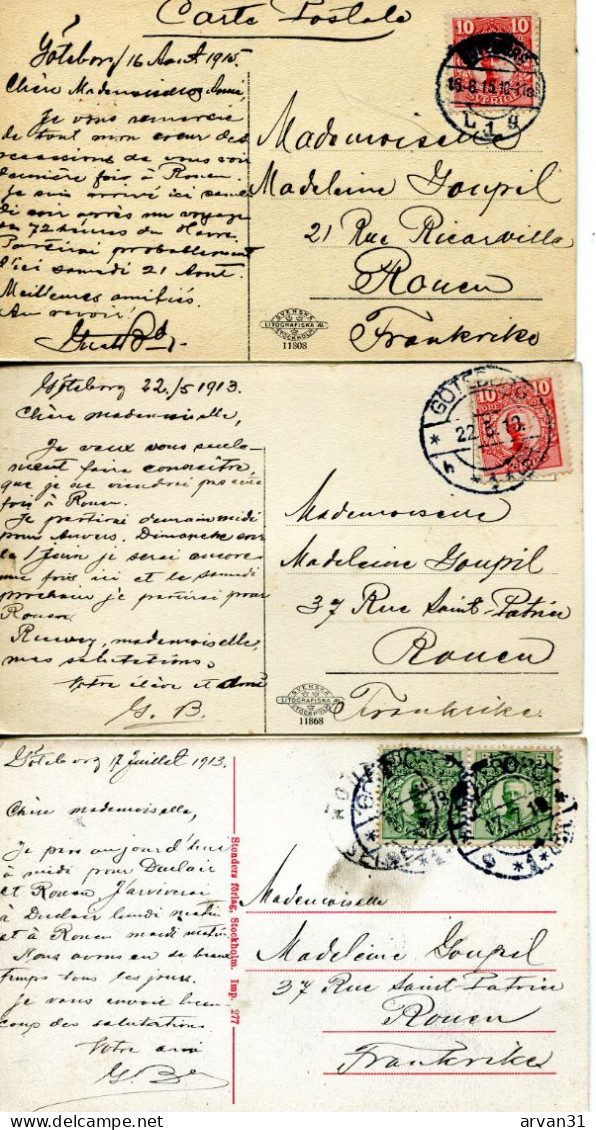 Carte Postale
Göteborg 16 Aout 1915
Chère Mademoiselle Amie,
Je vous remercie
de tout mon coeur des
occasions de vous voir
dernière fois à Rouen.
Je suis arrivé ici
di soir après un voyage
72 heures du Havre.
Partirai probablement
d'ici samedi 21 Aout.
Meilleures amitiés.
Au revoir!
10 10
SVERIGE
16.8.15.10-11
L 1 g
Mademoiselle
Madeleine Goupil
21 Rue Ricarville
Rouen
Frankrike
SVENSKA
LITOGRAFISKA AB
STOCKHOLM
11808
Göteborg 22/5 1913.
Chère mademoiselle,
Je veux vous seule-
ment faire connaître,
que je ne viendrai pas
fois à Rouen.
Je partirai demain midi
pour Anvers. Dimanche
la 1 Juin je serai encore
une fois ici et le samedi
prochain je partirai pour
Rouen
mademoiselle,
mes salutations.
Votre élève et
G. B.
10 10
GÖTEBORG
22.5.13.
Mademoiselle
Madeleine Goupil
37 Rue Saint-Patrice
Rouen
Frankrike
SVENSKA
LITOGRAFISKA AB
STOCKHOLM
11868
Göteborg 17 Juillet 1913.
Chère mademoiselle,
Je pars aujourd'hui
à midi pour Duclair
et Rouen J'arriverai
à Duclair lundi matin
et à Rouen mardi matin.
Nous avons eu de beau
temps tous les jours.
Je vous envoie beau-
coup des salutations.
Votre ami
G. B.
Stenders förlag, Stockholm. Imp. 277
Mademoiselle
Madeleine Goupil
37 Rue Saint-Patrice
Rouen
Frankrike
delcampe.net
arvan31